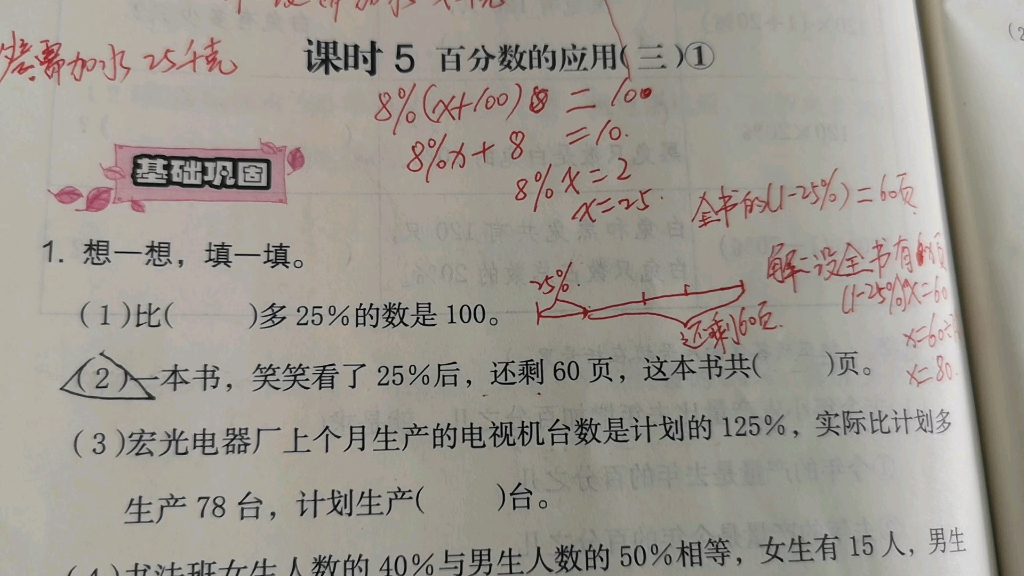 答需加水 25千克
课时 5 百分数的应用(三)①
8%(x+100) = 10
8%x+8 =10.
8% x=2
x=25.
全书的(1-25%)=60页
基础巩固
1. 想一想，填一填。
解:设全书有x页
(1-25%)x=60
25%
还剩60页.
(1)比( )多 25%的数是 100。
x=60÷
x=80.
(2)一本书，笑笑看了 25%后，还剩 60 页，这本书共( )页。
(3)宏光电器厂上个月生产的电视机台数是计划的 125%，实际比计划多
生产 78 台，计划生产( )台。
(4)书法班女生人数的 40%与男生人数的 50%相等，女生有 15 人，男生